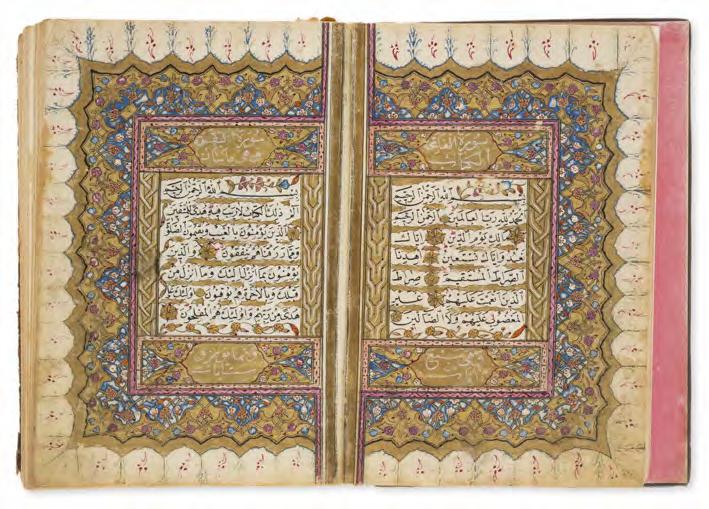 سورة الفاتحة
الكتاب
بسم الله الرحمن الرحيم
الحمد لله رب العالمين الرحمن الرحيم
مالك يوم الدين اياك
نعبد واياك نستعين اهدنا
الصراط المستقيم صراط
الذين انعمت عليهم غير
المغضوب عليهم ولا الضالين
وهي سبع
آيات
سورة البقرة
بسم الله الرحمن الرحيم
الم ذلك الكتاب لا ريب فيه هدى للمتقين
الذين يؤمنون بالغيب ويقيمون الصلوة
ومما رزقناهم ينفقون والذين
يؤمنون بما انزل اليك وما انزل من
قبلك وبالآخرة هم يوقنون اولئك على
هدى من ربهم واولئك هم المفلحون